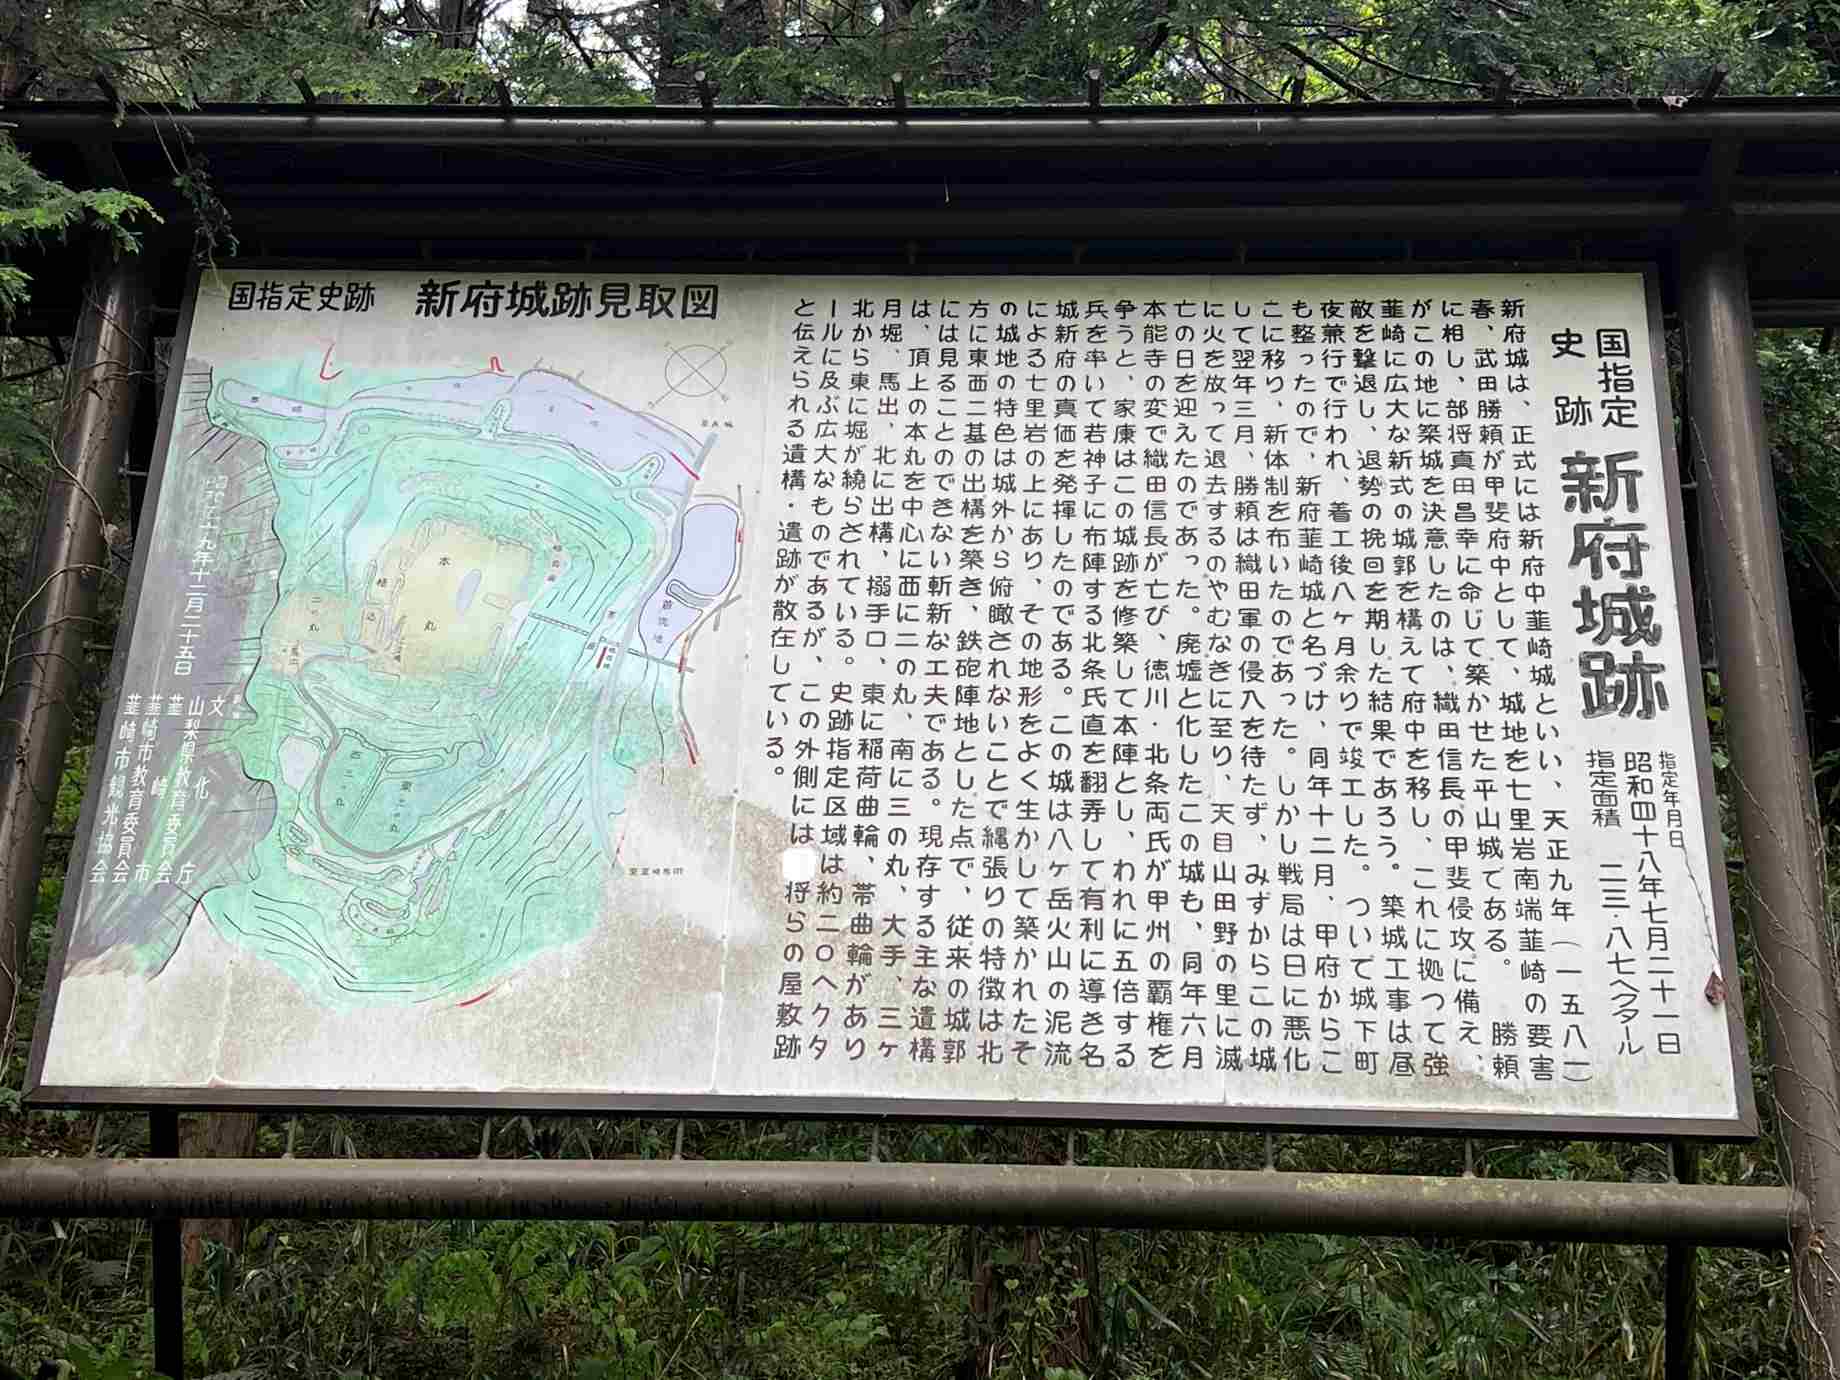 国指定
史跡
新府城跡
指定年月日
昭和四十八年七月二十一日
指定面積 二三・八七ヘクタール
新府城は、正式には新府中韮崎城といい、天正九年(一五八一)
春、武田勝頼が甲斐府中として、城地を七里岩南端韮崎の要害
に相し、部将真田昌幸に命じて築かせた平山城である。勝頼
がこの地に築城を決意したのは、織田信長の甲斐侵攻に備え、
韮崎に広大な新式の城郭を構えて府中を移し、これに拠つて強
敵を撃退し、退勢の挽回を期した結果であろう。築城工事は昼
夜兼行で行われ、着工後八ヶ月余りで竣工した。ついで城下町
も整ったので、新府韮崎城と名づけ、同年十二月、甲府からこ
こに移り、新体制を布いたのであった。しかし戦局は日に悪化
して翌年三月、勝頼は織田軍の侵入を待たず、みずからこの城
に火を放って退去するのやむなきに至り、天目山田野の里に滅
亡の日を迎えたのであった。廃墟と化したこの城も、同年六月
本能寺の変で織田信長が亡び、徳川・北条両氏が甲州の覇権を
争うと、家康はこの城跡を修築して本陣とし、われに五倍する
兵を率いて若神子に布陣する北条氏直を翻弄して有利に導き名
城新府の真価を発揮したのである。この城は八ヶ岳火山の泥流
による七里岩の上にあり、その地形をよく生かして築かれたそ
の城地の特色は城外から俯瞰されないことで縄張りの特徴は北
方に東西二基の出構を築き、鉄砲陣地とした点で、従来の城郭
には見ることのできない斬新な工夫である。現存する主な遺構
は、頂上の本丸を中心に西に二の丸、南に三の丸、大手、三ヶ
月堀、馬出、北に出構、搦手口、東に稲荷曲輪、帯曲輪があり
北から東に堀が繞らされている。史跡指定区域は約二〇ヘクタ
ールに及ぶ広大なものであるが、この外側には 将らの屋敷跡
と伝えられる遺構・遺跡が散在している。
国指定史跡 新府城跡見取図
本丸
二の丸
植込
西三の丸
東三の丸
首洗池
昭和五十九年十二月二十五日
文化庁
山梨県教育委員会
韮崎市
韮崎市教育委員会
韮崎市観光協会